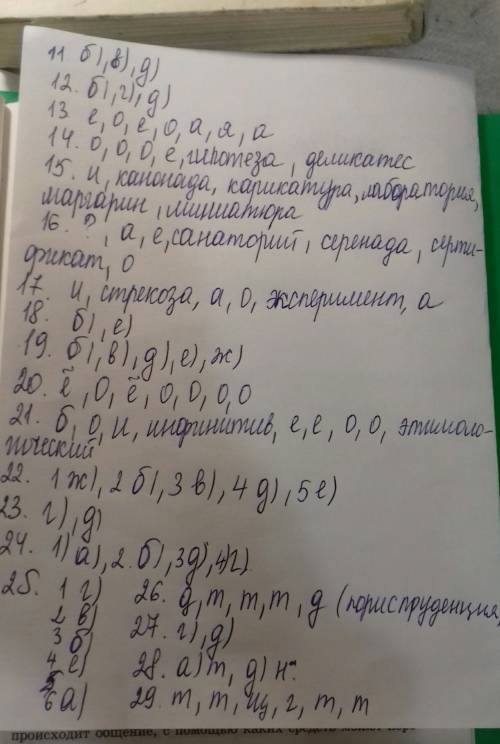 11. б), в), д)
12. б), г), д)
13. е, о, е, о, а, я, а
14. о, о, о, е, гипотеза, деликатес
15. и, канонада, карикатура, лаборатория,
маргарин, миниатюра
16. ?, а, е, санаторий, серенада, серти-
фикат, о
17. и, стрекоза, а, о, эксперимент, а
18. б), е)
19. б), в), д), е), ж)
20. ё, о, ё, о, о, о, о
21. б, о, и, инфинитив, е, е, о, о, этимоло-
гический
22. 1 ж), 2 б), 3 в), 4 д), 5 е)
23. г), д)
24. 1) а), 2. б), 3 д), 4) г)
25. 1 г) 26. д, т, т, т, д (юриспруденция,
2 в)
3 б) 27. г), д)
4 е)
5 28. а) т, д) н.
6 а) 29. т, т, щ, г, т, т
происходит общение, с помощью каких средств может